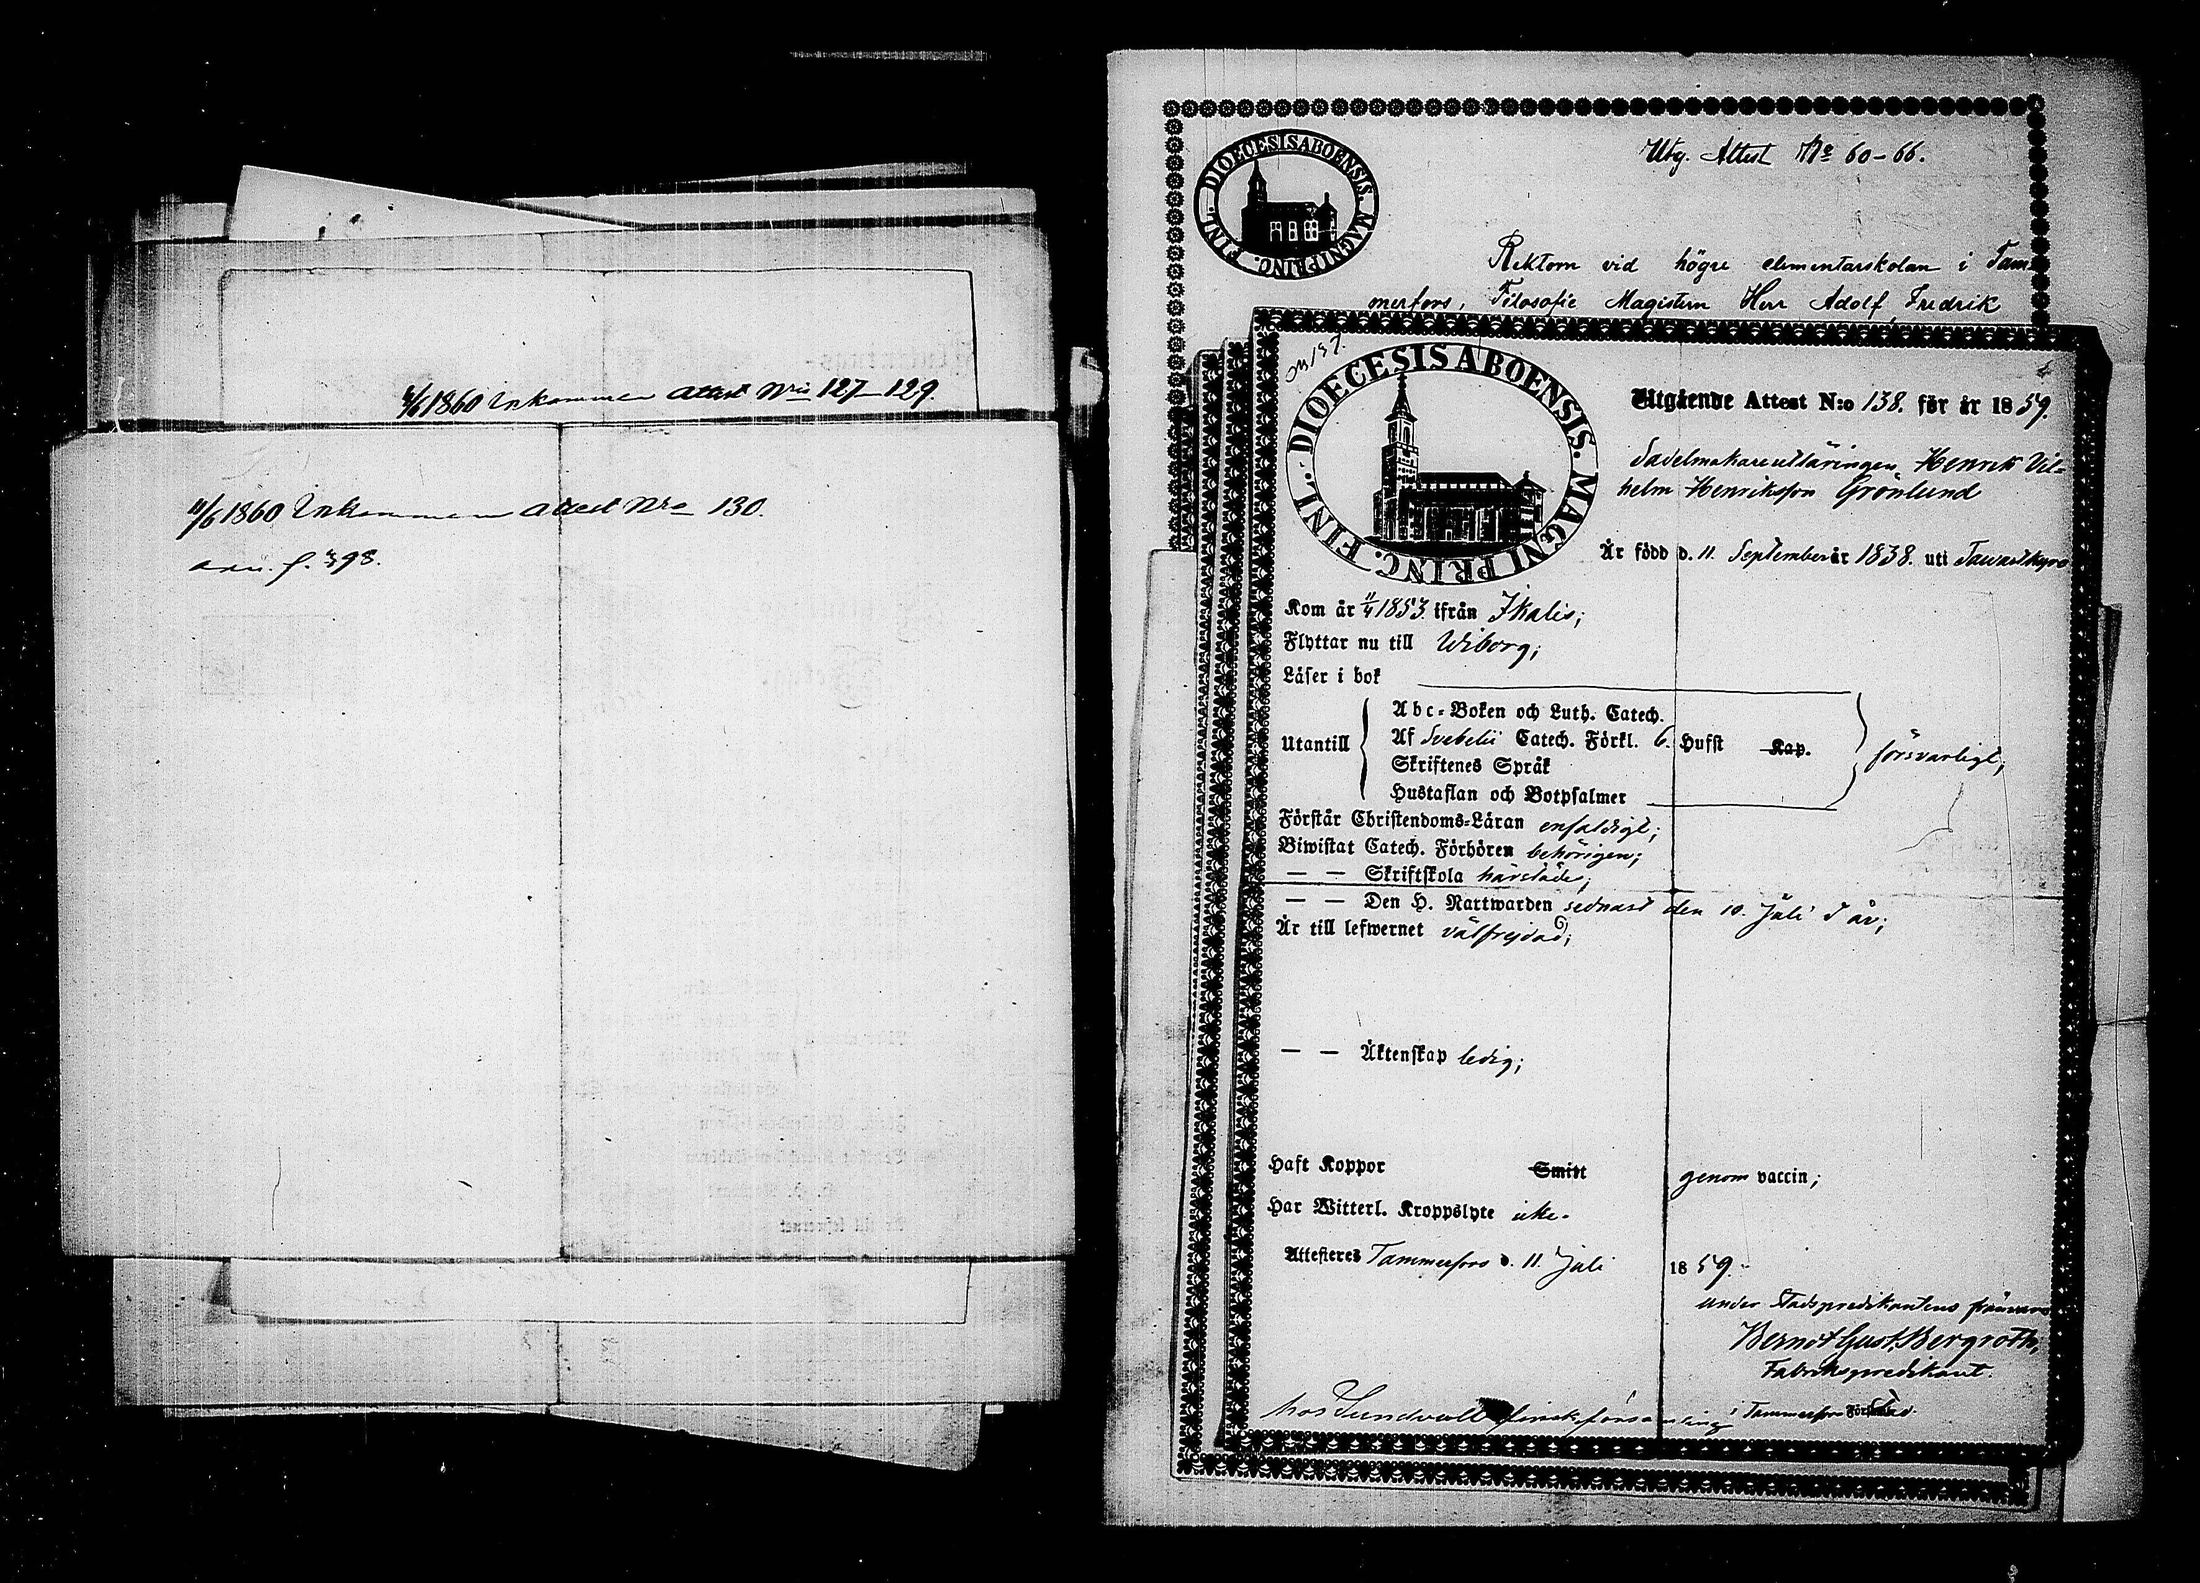 4/6 1860 Inkommen Attest Nris 127–129.
11/6 1860 Inkommen attest Nro 130.
DIOECESIS ABOENSIS. MAGNI PRINC. FINL.
Utg. Attest No 60–66.
Rektorn vid högre elementarskolan i Tam-
merfors, Filosofie Magistern Herr Adolf Fredrik
DIOECESIS ABOENSIS. MAGNI PRINC. FINL.
Utgående Attest N:o 138. för år 1859.
Sadelmakareutläringen, Henrik Vil-
helm Henriksson Grönlund
Är född d. 11 September år 1838. uti Tawastkyro
Kom år 11/4 1853 ifrån Ikalis;
Flyttar nu till Wiborg;
Läser i bok
Utantill
Abc-Boken och Luth. Catech.
Af Svebelii Catech. Förkl. 6. Hufst Kap.
Skriftenes Språk
Hustaflan och Botpsalmer
försvarligt;
Förstår Christendoms-Läran enfaldigt;
Biwistat Catech. Förhören behörigen;
— — Skriftskola härstädes;
— — Den H. Nattwarden sednast den 10. Juli i år;
Är till lefwernet välfrejdad;
— — Äktenskap ledig;
Haft Koppor Smitt genom vaccin;
Har Witterl. Kroppslyte icke.
Attesteres Tammerfors d. 11 Juli 1859.
under Stadspredikantens frånvaro
Bernt Gust. Bergroth,
Fabrikspredikant.
hos Sundvall finsk församling i Tammerfors